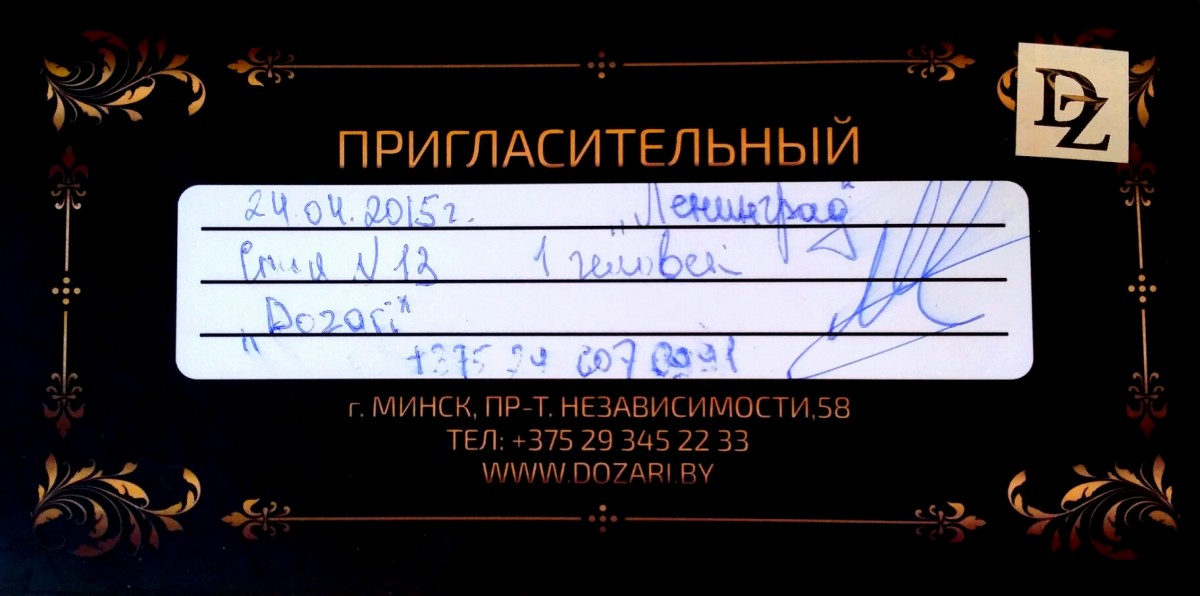 DZ
ПРИГЛАСИТЕЛЬНЫЙ
24.04.2015г. „Ленинград"
N 13 1 человек
„Dozari"
+375 29
г. МИНСК, ПР-Т. НЕЗАВИСИМОСТИ,58
ТЕЛ: +375 29 345 22 33
WWW.DOZARI.BY